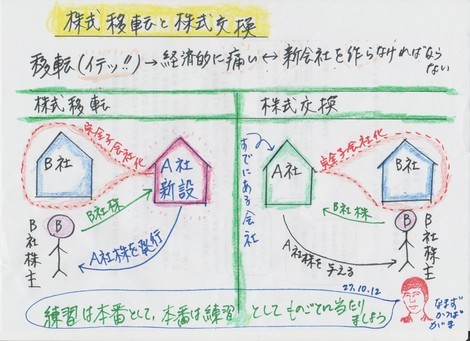 株式移転と株式交換
移転(イテッ!!)→経済的に痛い↔新会社を作らなければなら
ない
株式移転
完全子会社化
B社
A社
新設
B社株
A社株を発行
B
B社株主
株式交換
すでにある会社
A社
完全子会社化
B社
B社株
A社株を与える
B
B社株主
27.10.12
練習は本番として,本番は練習としてものごとに当たり
ましょう
なまず
かつぱ
がま